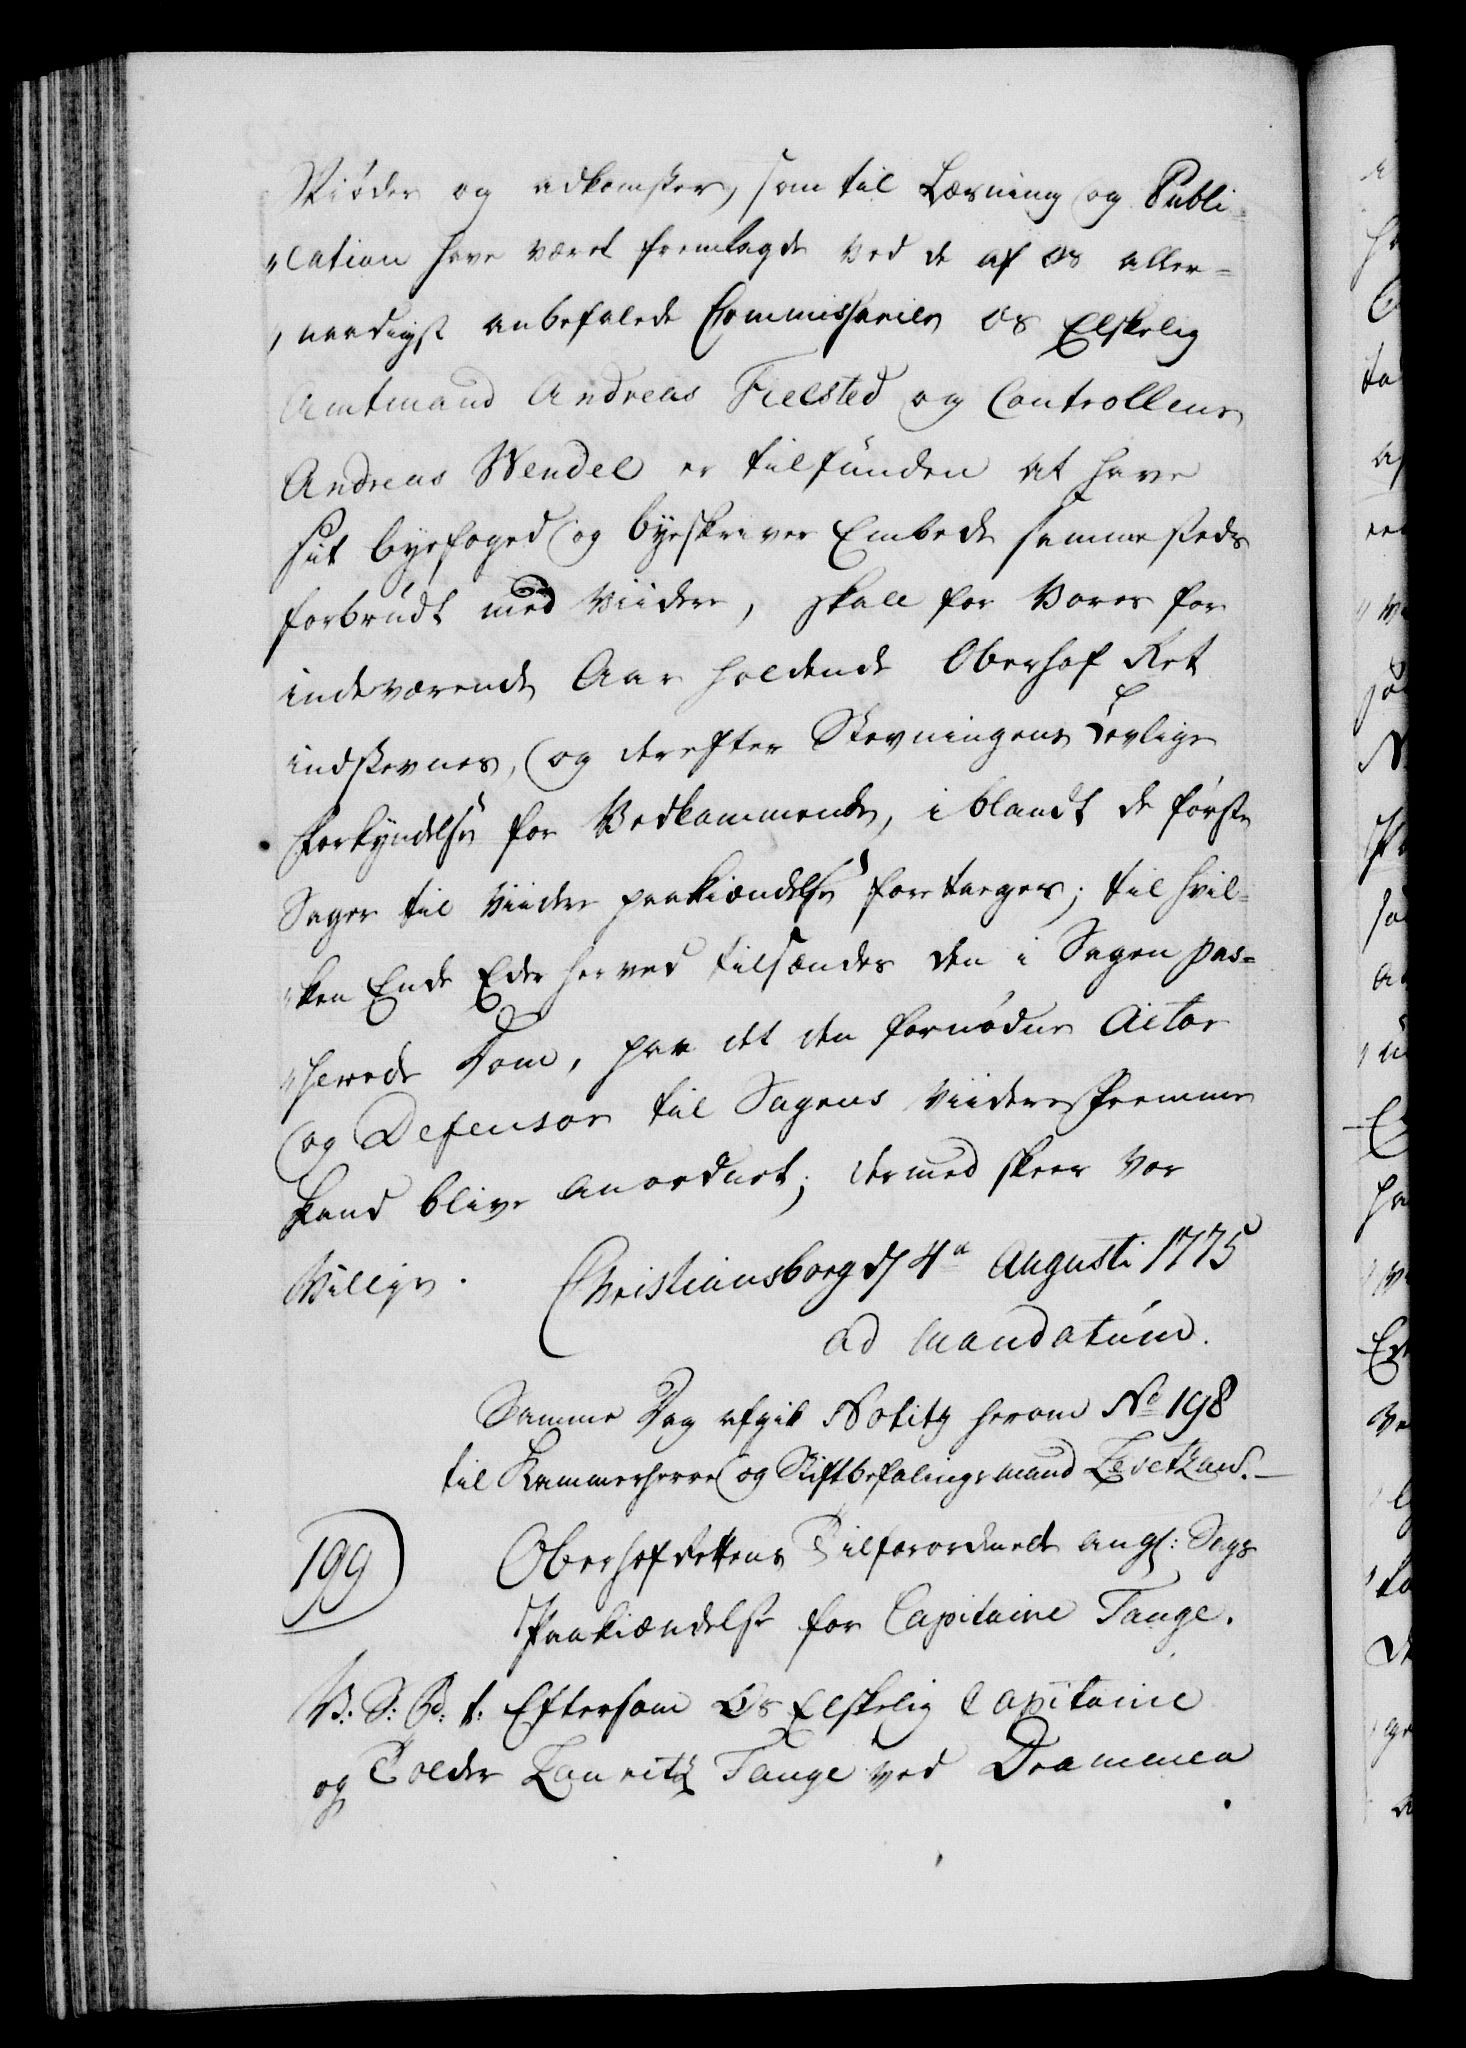 Skiøder og adkomster, som til Læsning og Publi
"cation have været fremlagde ved de af os aller-
"naadigst anbefalede Commissarier os Elskelig
Amtmand Andreas Fielsted og Controlleur
Andreas Wendel er tilfunden at have
sit byefoged og byeskriver Embede sammesteds
forbrudt med Viidere, skall for Vores for
indeværende Aar holdende Oberhof Ret
indstevnes, og derefter Stevningens Lovlige
Forkyndelse for Vedkommende, iblandt de første
Sager til viidere paakiændelse foretages; til hvil-
"ken Ende Eder herved tilsændes den i Sagen pas-
"serede Dom, paa det den fornødne Actor
og Defensor til Sagens viidere Fremme
kand blive anordnet; dermed skeer Vor
Villie. Christiansborg d 4a Augusti 1775
ad Mandatum.
Samme Dag afgik Notitz herom No 198
til Kammerherre og Stiftbefalingsmand Levetzau.
199 Oberhofrettens Tilforordnede angl: Sags
Paakiændelse for Capitaine Tange.
V: S: Gd: t: Eftersom Os Elskelig Capitaine
og Tolder Lauritz Tange ved Drammen